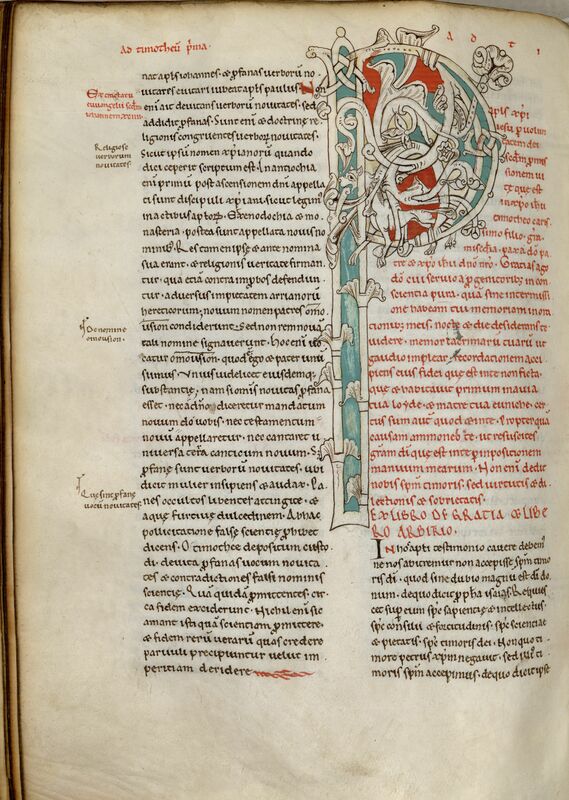 Ad timotheū p̄ma.
A D T I
nat apl̄s iohannes. & ꝓfanas uerborū no-
uitates euitari iubeat apl̄s paulus. N
on enī ait deuitans uerborū nouitates. sed
addidit ꝓfanas. Sunt enī & doctrinę re-
ligionis congruentes uerboꝝ nouitates.
Sicut ipsū nomen xp̄ianorū quando
dici ceperit scriptum est. In antiochia
enī primū post ascensionem dn̄i appella-
ti sunt discipuli xp̄iani. sicut legim̄
in actibus aptoꝝ. & xenodochia & mo-
nasteria. postea sunt appellata nouis no-
minib;. Res tamen ipsę & ante nomina
sua erant. & religionis ueritate firman-
tur. qua etiā contra inꝓbos defendun-
tur. aduersus impietatem arrianorū
hereticorum. nouum nomen patres omo
usion condiderunt. Sed non rem noua
tali nomine signauerunt. Hoc enī uo-
catur omousion. quod ego & pater unū
sumus. Unius uidelicet eiusdemq;
substantię. nam si omis nouitas ꝓfana
esset. nec a dn̄o diceretur mandatum
nouum do uobis. nec testamentum
nouū appellaretur. nec cantaret u-
niuersa terra canticum nouum. S
ꝓfanę sunt uerborū nouitates. ubi
dicit mulier insipiens & audax. Pa-
nes occultos libenter attingite. &
aquę furtiuę dulcedinem. Ab hac
pollicitatione falsę scientię ꝓhibet
dicens. O timothee depositum custo-
di. deuita ꝓfanas uocum nouita-
tes. & contradictiones falsi nominis
scientię. Quā quidā ꝓmittentes. cir-
ca fidem exciderunt. Nichil enī sic
amant ista quā scientiam ꝓmittere.
& fidem rerū uerarū quas credere
paruuli precipiuntur uelut im-
peritiam deridere
Religiose
uerborum
nouitates.
De nomine
omousion.
Quę sint ꝓfanę
uocū nouitates.
P
xp̄i
iesu p̄ uolun
tatem dei
secdm̄ ꝓmis
sionem ui
tę que est
in xp̄o ihū
timotheo caris
simo filio. grā.
misc̄dia. pax a dō pa-
tre & xp̄o ihū dn̄o nr̄o. Gratias ago
dō cui seruio a ꝓgenitorib; in con-
scientia pura. qua sine intermissi-
one habeam tui memoriam in ora-
tionib; meis. nocte ac die desiderans te
uidere. memor lacrimarū tuarū ut
gaudio implear. recordationem acci-
piens eius fidei que est in te non ficta.
que & habitauit primum in auia
tua loyde. & matre tua eunice. cer-
tus sum aut̄ quod & in te. Propter quā
causam ammoneo te. ut resuscites
gratiam dī que est in te p̄ inpositionem
manuum mearum. Non enī dedit
nobis spm̄ timoris. sed uirtutis & di-
lectionis & sobrietatis.
EX LIBRO DE GRATIA & LIBE
RO ARBITRIO.
In hoc apłi testimonio cauere debem̄
ne nos arbitremur non accepisse spm̄ timo
ris dī. quod sine dubio magnū est dī do-
num. de quo dicit ꝓpha isaias. Requies-
cet sup eum spc̄ sapientię & intellectus.
spc̄ consilii & fortitudinis. spc̄ scientiae
& pietatis. spc̄ timoris dei. Non quo ti-
more petrus xp̄m negauit. sed illū ti-
moris spm̄ accepimus. de quo dicit ipse